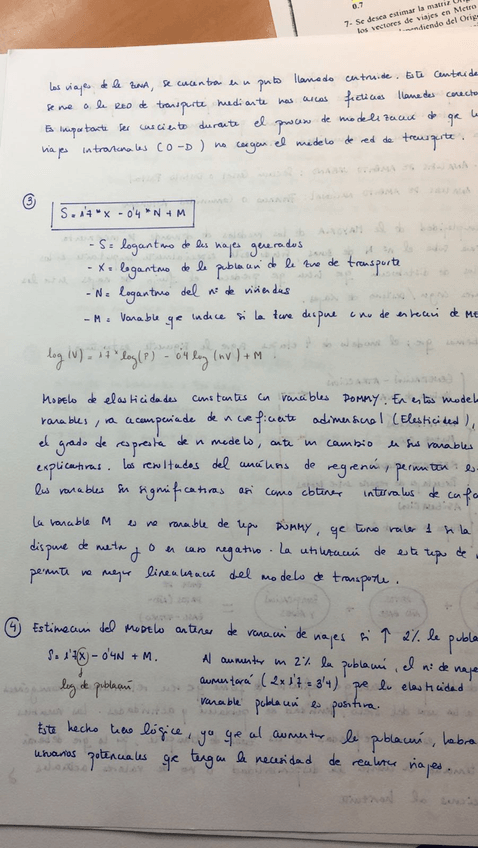 0.7
7- Se desea estimar la matriz Orig
los vectores de viajes en Metro
pendiendo del Orige
los viajes de la zona, se cuentan en un punto llamado centroide. Este centroide
se une a la RED de transporte mediante unos arcos ficticios llamados conecto
Es importante ser consciente durante el proceso de modelización de qe l
viajes intrazonales (O-D) no cargan el modelo de red de transporte.
③ S = 1'7 * X - 0'4 * N + M
- S = logaritmo de los viajes generados
- X = logaritmo de la población de la zona de transporte
- N = logaritmo del nº de viviendas
- M = Variable qe indica si la zona dispone o no de estación de ME
log(V) = 1'7 * log(P) - 0'4 log(nV) + M.
MODELO de elasticidades constantes con variables DOMMY. En estos model
variables, va acompañada de un coeficiente adimensional (Elasticidad),
el grado de respuesta de un modelo, ante un cambio en sus variables
explicativas. Los resultados del análisis de regresión, permiten es
las variables son significativas así como obtener intervalos de confa
la variable M es una variable de tipo DOMMY, qe toma valor 1 si la
dispone de metro y 0 en caso negativo. La utilización de este tipo de
permite una mejor linealización del modelo de transporte.
④ Estimación del MODELO anterior de variación de viajes si ↑ 2% la pobla
S = 1'7(X) - 0'4N + M.
log de población
Al aumentar un 2% la población, el nº de viaje
aumentará (2x1'7 = 3'4) pq la elasticidad
variable población es positiva.
Este hecho tiene lógica, ya qe al aumentar la población, habrá
usuarios potenciales qe tengan la necesidad de realizar viajes.